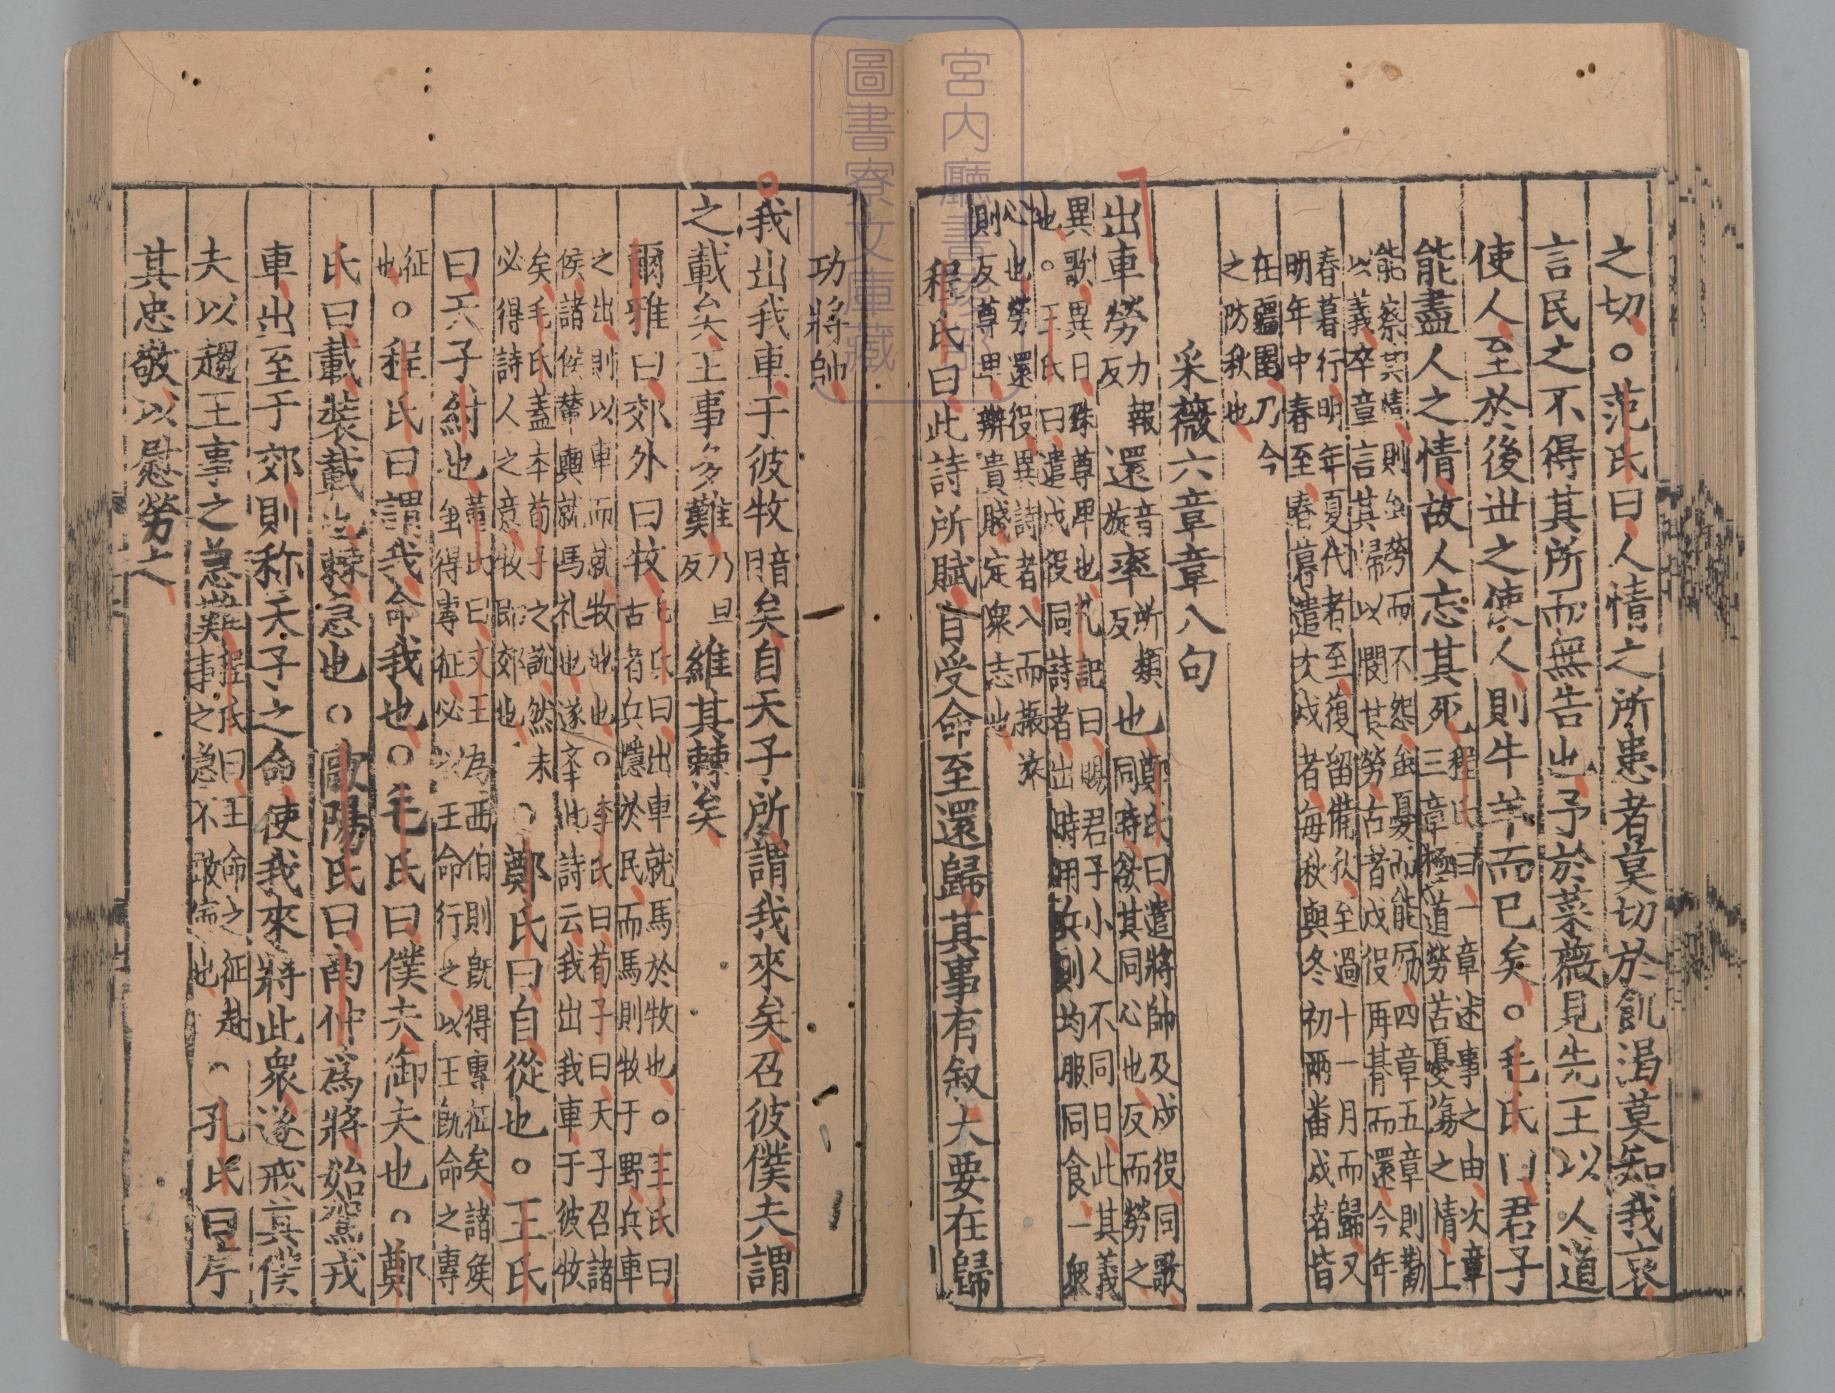 之切。范氏曰人情之所患者莫切於飢渴莫知我哀
言民之不得其所而無告也予於菜薇見先王以人道
使人至於後世之使人則牛羊而已矣。毛氏曰君子
能盡人之情故人忘其死程氏曰一章述事之由次章
三章極道勞苦憂傷之情上
能察其情則雖勞而不怨雖憂而能勵四章五章則勸
以義卒章言其歸以閔其勞古者戍役再朞而還今年
春暮行明年夏代者至復留備秋至過十一月而歸又
明年中春至春暮遣次戍者每秋與冬初兩番戍者皆
在疆圉乃今
之防秋也
采薇六章章八句
出車勞力報反還音旋率所類反也鄭氏曰遣將帥及戍役同歌
同時欲其同心也反而勞之
異歌異日殊尊卑也礼記曰賜君子小人不同日此其義
也。王氏曰遣戍役同詩者出時用兵則均服同食一衆
心也勞還役異詩者入而振旅
則反尊卑辨貴賤定衆志也
程氏曰此詩所賦自受命至還歸其事有叙大要在歸
功將帥
我出我車于彼牧音目矣自天子所謂我來矣召彼僕夫謂
之載矣王事多難乃旦反維其棘矣
爾雅曰郊外曰牧毛氏曰出車就馬於牧也。王氏曰
古者兵隱於民而馬則牧于野兵車
之出則以車而就牧地也。李氏曰荀子曰天子召諸
侯諸侯輦輿就馬礼也遂牽此詩云我出我車于彼牧
矣毛氏蓋本荀子之說然未
必得詩人之意牧即郊也。鄭氏曰自從也。王氏
曰天子紂也董氏曰文王為西伯則旣得專征矣諸侯
雖得專征必以王命行之以王旣命之專
征
也。程氏曰謂我命我也。毛氏曰僕夫御夫也。鄭
氏曰載裝載也棘急也。歐陽氏曰南仲爲將始駕戎
車出至于郊則称天子之命使我來將此衆遂戒其僕
夫以趨王事之急難程氏曰王命之征赴
事之急不敢緩也。孔氏曰序
其忠敬以慰勞之
宮内廳書陵部
圖書寮文庫藏